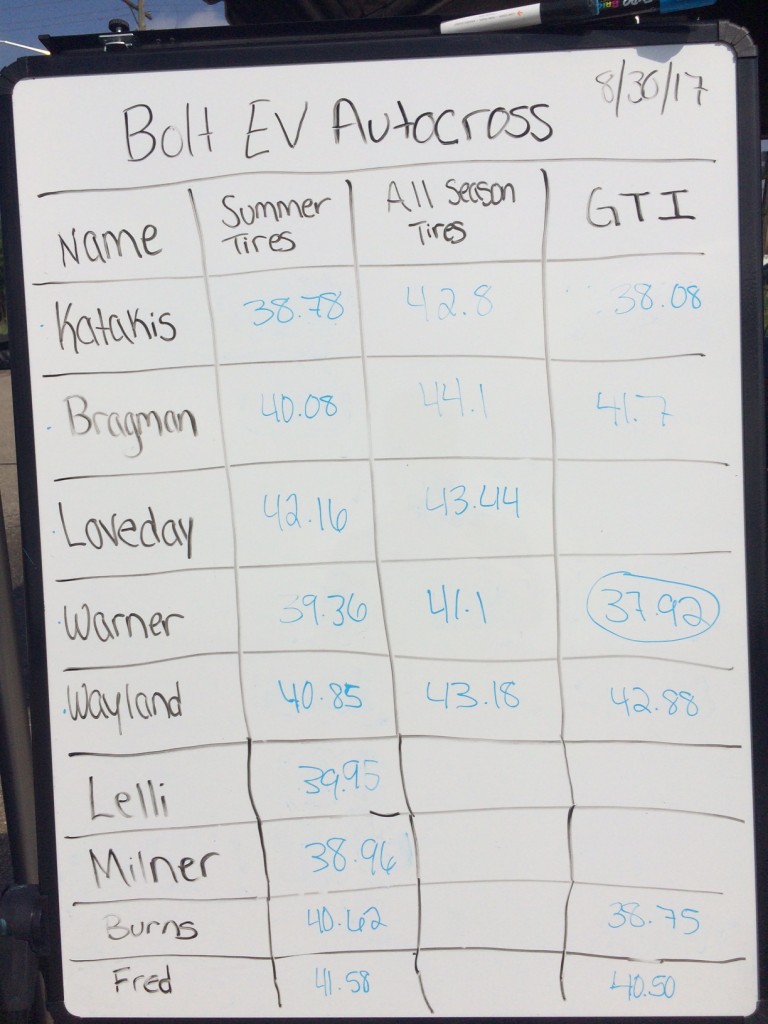 8/30/17
Bolt EV Autocross
Name Summer Tires All Season Tires GTI
Katakis 38.78 42.8 38.08
Bragman 40.08 44.1 41.7
Loveday 42.16 43.44
Warner 39.36 41.1 37.92
Wayland 40.85 43.18 42.88
Lelli 39.95
Milner 38.96
Burns 40.62 38.75
Fred 41.58 40.50